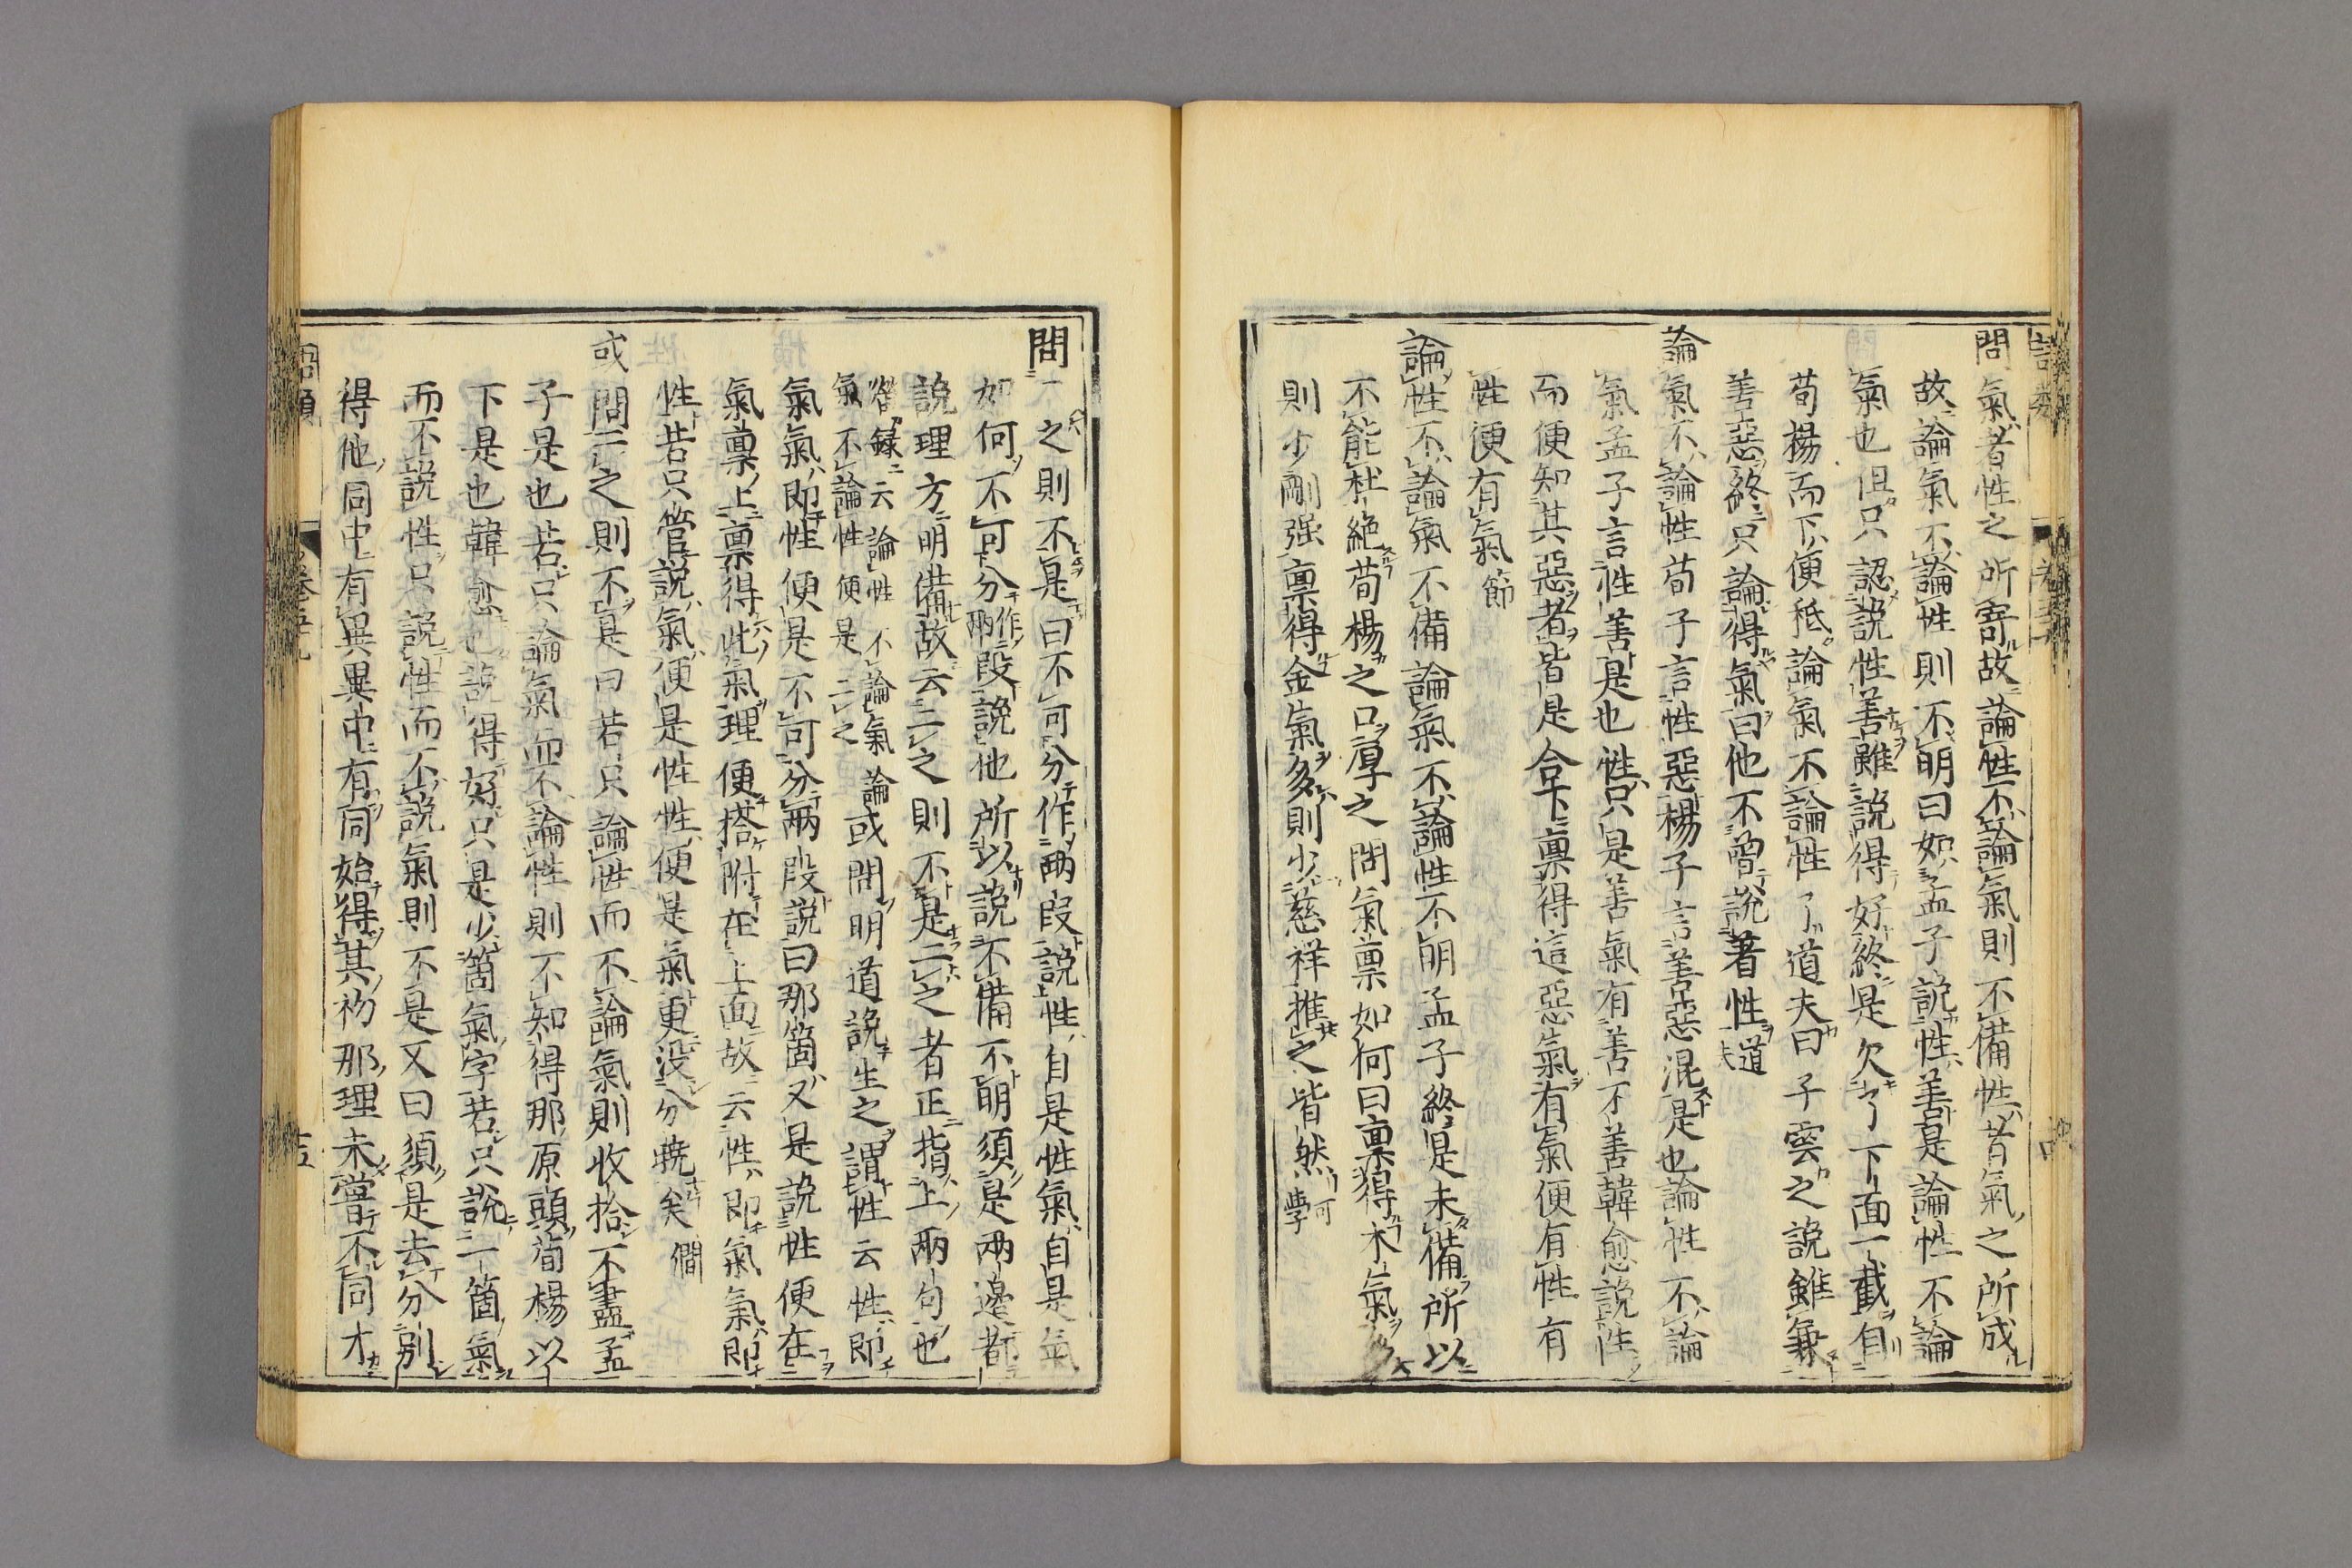 問氣者性之所寄故論性不論氣則不備性者氣之所成
故論氣不論性則不明曰如孟子說性善是論性不論
氣也但只認說性善雖說得好終是欠了下面一截自
荀楊而下便秪論氣不論性了道夫曰子雲之說雖兼
善惡終只論得氣曰他不曾說著性道夫
論氣不論性荀子言性惡楊子言善惡混是也論性不論
氣孟子言性善是也性只是善氣有善不善韓愈說性
而便知其惡者皆是合下稟得這惡氣有氣便有性有
性便有氣節
論性不論氣不備論氣不論性不明孟子終是未備所以
不能杜絕荀楊之口厚之問氣稟如何曰稟得木氣多
則少剛强稟得金氣多則少慈祥推之皆然可學
問二之則不是曰不可分作兩段說性自是性氣自是氣
如何不可分作兩段說他所以說不備不明須是兩邊都
說理方明備故云二之則不是二之者正指上兩句也
錄云論性不論氣論
氣不論性便是二之
或問明道說生之謂性云性即
氣氣即性便是不可分兩段說曰那箇又是說性便在
氣稟上稟得此氣理便搭附在上面故云性即氣氣即
性若只管說氣便是性性便是氣更没分曉矣僩
或問二之則不是曰若只論性而不論氣則收拾不盡孟
子是也若只論氣而不論性則不知得那原頭荀楊以
下是也韓愈也說得好只是少箇氣字若只說一箇氣
而不說性只說性而不說氣則不是又曰須是去分別
得他同中有異異中有同始得其初那理未嘗不同才